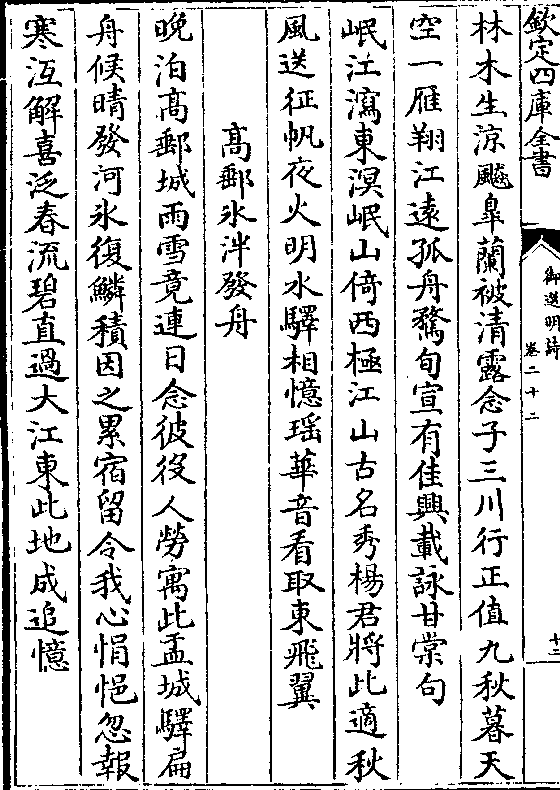 欽定四庫全書
御選明詩
卷二十二
十二
林木生涼飈臯蘭被清露念子三川行正值九秋暮天
空一雁翔江遠孤舟騖旬宣有佳興載詠甘棠句
岷江瀉東溟岷山倚西極江山古名秀楊君將此適秋
風送征帆夜火明水驛相憶瑶華音看取東飛翼
高郵氷泮發舟
晚泊高郵城雨雪竟連日念彼役人勞寓此盂城驛扁
舟候晴發河氷復鱗積因之累宿留令我心悁悒忽報
寒沍解喜泛春流碧直過大江東此地成追憶